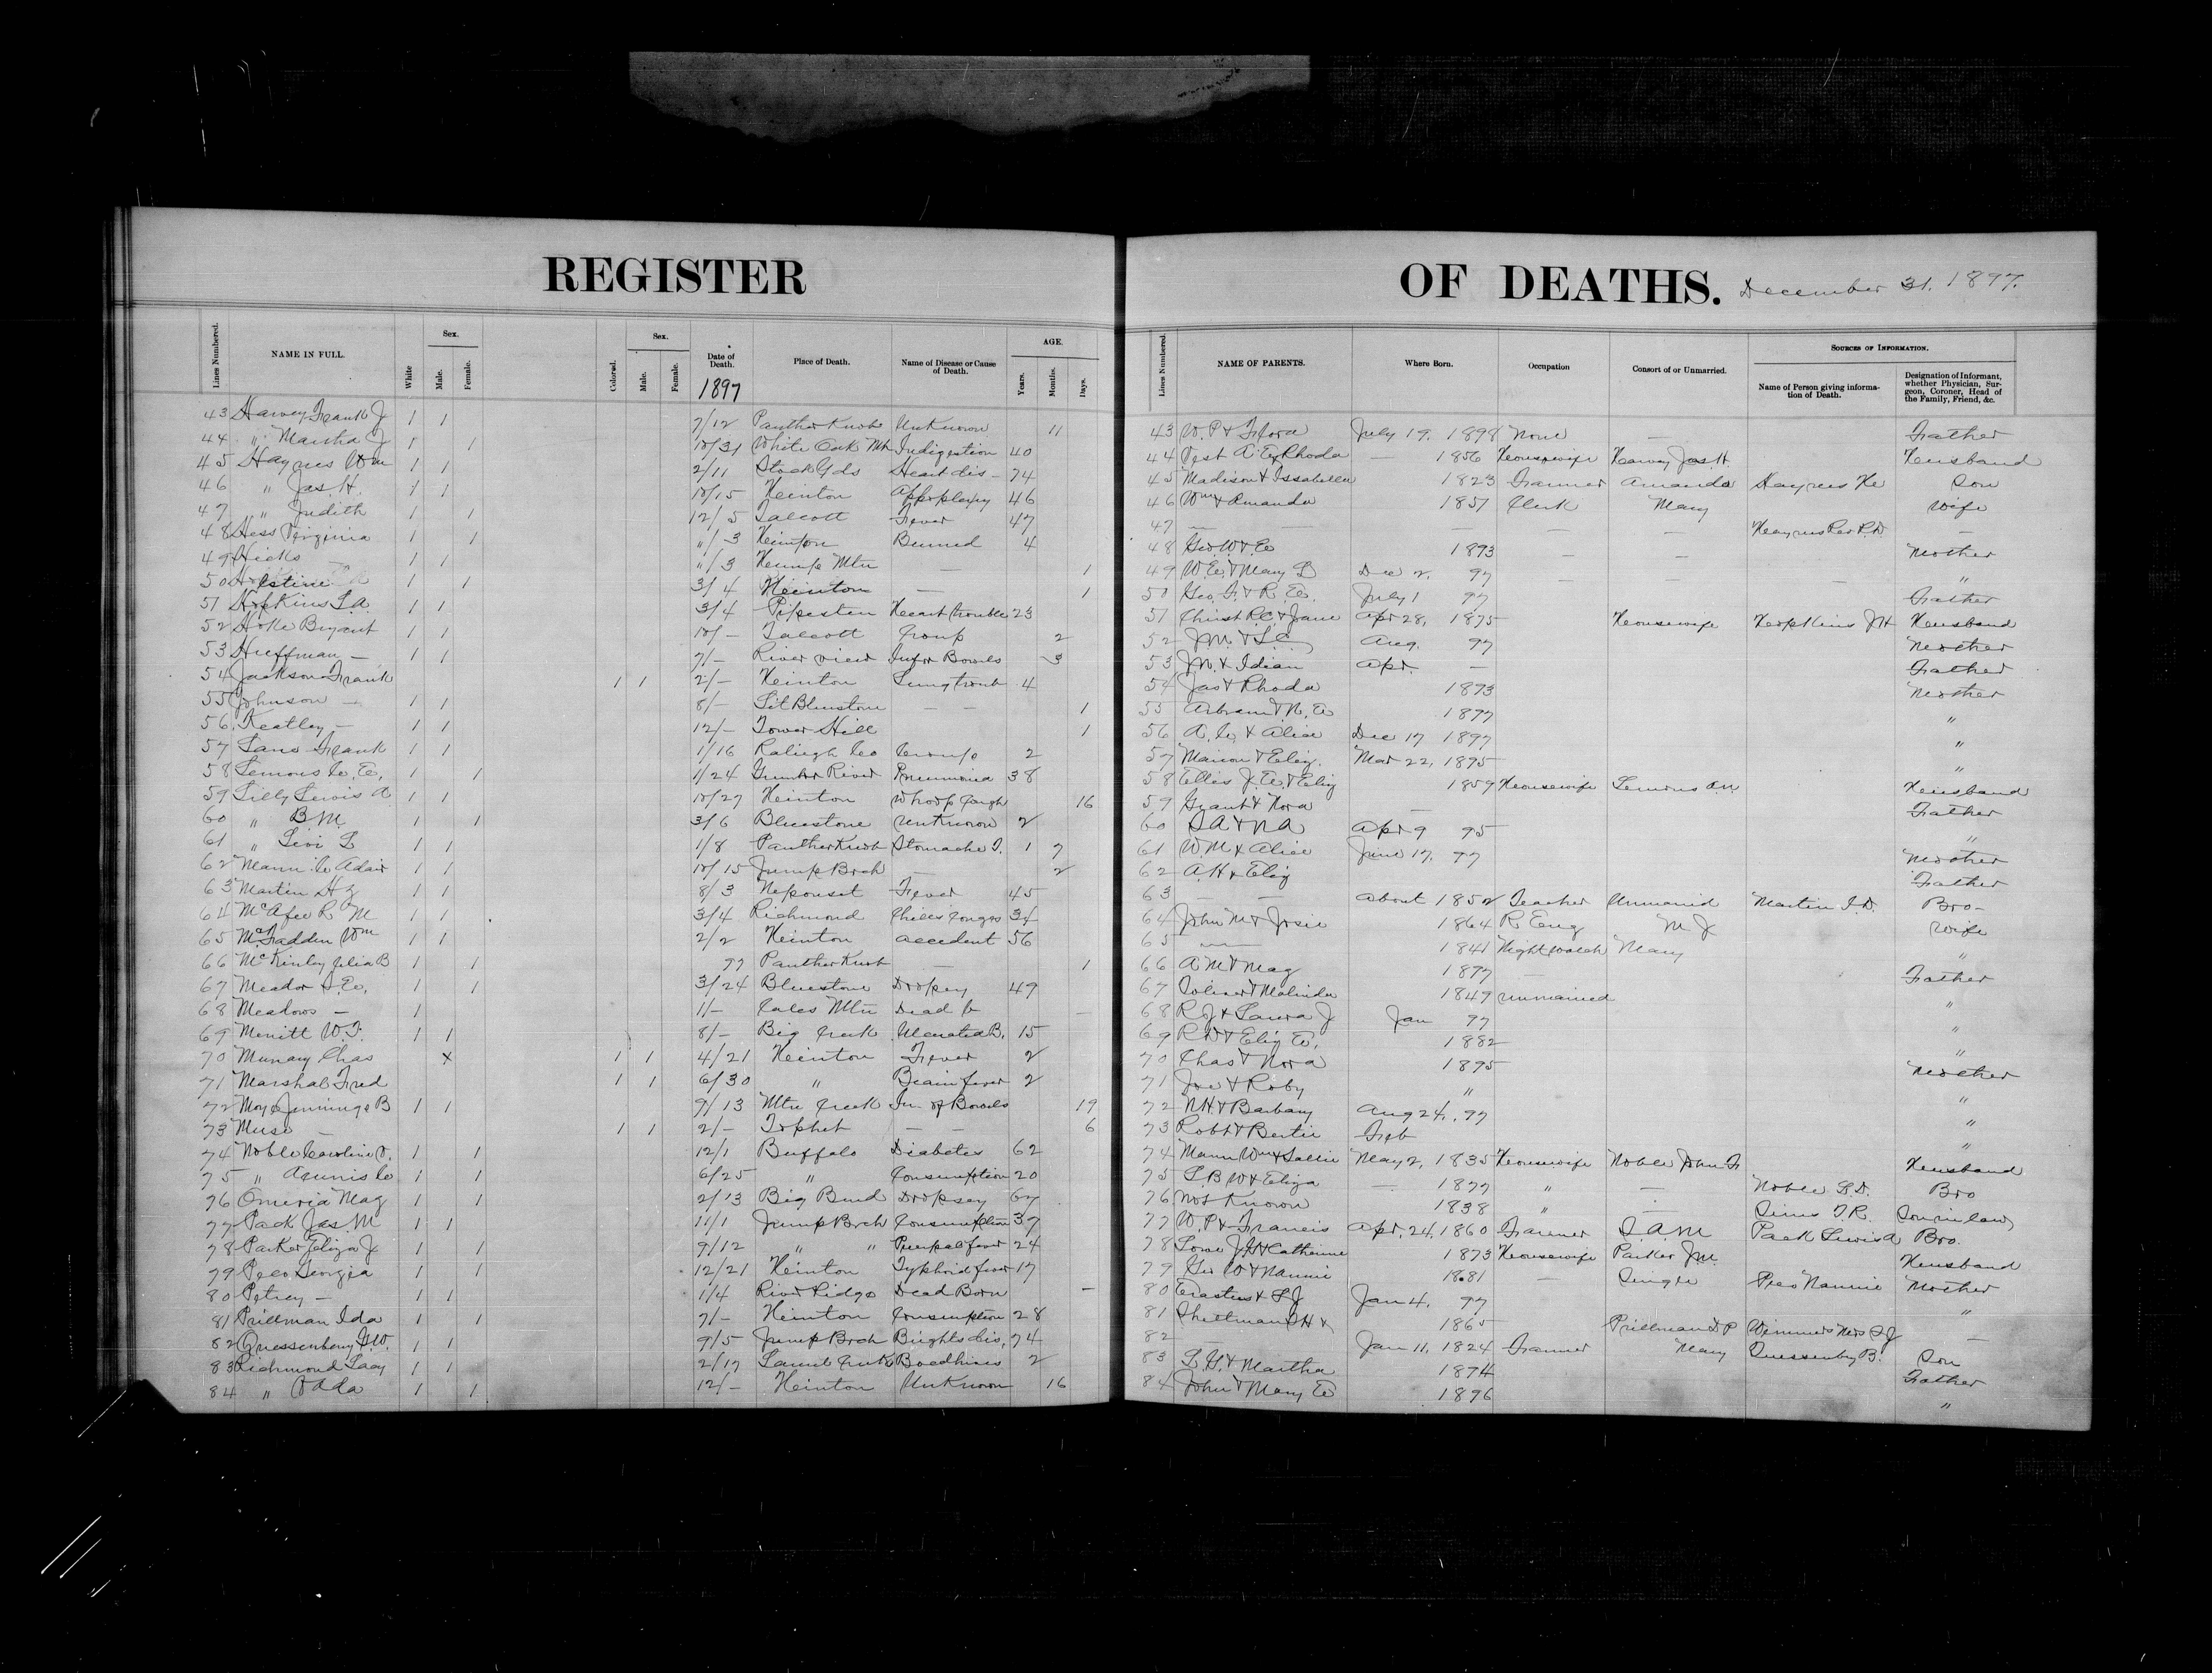 REGISTER OF DEATHS. December 31. 1897.
Lines Numbered. NAME IN FULL. White Sex. Male. Female. Colored. Sex. Male. Female. Date of Death. 1897 Place of Death. Name of Disease or Cause of Death. AGE. Years. Months. Days.
43 Harvey Frank J 1 1 7/12 Panther Knob Unknown 11
44 " Marsha J 1 1 10/31 White Oak Mtn Indigestion 40
45 Haynes Wm 1 1 2/11 Heart dis- 74
46 " Jas. H. 1 1 10/15 Hinton 46
47 " Judith 1 1 12/5 Talcott Fever 47
48 Hess Virginia 1 1 "/3 Hinton Burned 4
49 Hicks 1 1 "/3 Kemp Mtn — 1
50 1 1 3/4 Hinton — 1
51 Hopkins L.A. 1 1 3/4 Pipestem Heart trouble 23
52 Hoke Bryant 1 1 10/- Talcott Croup 2
53 Huffman — 1 1 7/- River view Bowels 3
54 Jackson Frank 1 1 2/- Hinton Lung troub 4
55 Johnson — 1 1 8/- Lit Bluestone — — 1
56 Keatley — 1 1 12/- Tower Hill 1
57 Lane Frank 1 1 1/16 Raleigh Co Croup 2
58 Lemons C. E. 1 1 1/24 River Pneumonia 38
59 Lilly Lewis A 1 1 10/27 Hinton Whoop Cough 16
60 " B M. 1 1 3/6 Bluestone Unknown 2
61 " Levi L 1 1 1/8 Panther Knob Stomache T. 1 7
62 Mann C. Adair 1 1 10/15 Jump Brch — 2
63 Martin H Z 1 1 8/3 Neponset Fever 45
64 McAfee R M 1 1 3/4 Richmond 34
65 McFadden Wm 1 1 2/2 Hinton accident 56
66 McKinley Julia B 1 1 97 Panther Knob — 1
67 Meador S. E. 1 1 3/24 Bluestone Dropsy 49
68 Meadows — 1 1/- Cales Mtn Dead b —
69 Merritt W. T. 1 1 8/- Big Creek Ulcerated B. 15
70 Munay Chas x 1 1 4/21 Hinton Fever 2
71 Marshal Fred 1 1 6/30 " Brain fever 2
72 Moye Jennings B 1 1 9/13 Mtn Creek In. of Bowels 19
73 Muse — 1 1 2/- Tophet — — 6
74 Noble Caroline V. 1 1 12/1 Buffalo Diabetes 62
75 " 1 1 6/25 " Consumption 20
76 Omeria Mag 1 1 2/13 Big Bend Dropsey 67
77 Pack Jas M 1 1 11/1 Jump Brch Consumption 37
78 Parker Eliza J 1 1 9/12 " " 24
79 Peeo Georgia 1 1 12/21 Hinton Typhoid fever 17
80 Petrey — 1 1 1/4 River Ridge Dead Born —
81 Prillman Ida 1 1 7/- Hinton Consumption 28
82 Quessenberry G.W. 1 1 9/5 Jump Brch Brights dis. 74
83 Richmond Lacy 1 1 2/17 2
84 " Vada 1 1 12/- Hinton Unknown 16
Lines Numbered NAME OF PARENTS. Where Born. Occupation Consort of or Unmarried. SOURCES OF INFORMATION. Name of Person giving information of Death. Designation of Informant, whether Physician, Surgeon, Coroner, Head of the Family, Friend, &c.
43 W. P & Flora July 19. 1898 None — Father
44 Vest A. E & Rhoda — 1856 Housewife Harvey Jas. H. Husband
45 Madison & Issabella 1823 Farmer Amanda Haynes Son
46 Wm & Amanda 1851 Clerk Mary Wife
47 — — — — — Haynes Rev P. D —
48 Geo. W & E 1893 — — Mother
49 W E & Mary L Dec 2. 97 — — — "
50 Geo. F. & R. E. July 1 97 Father
51 R.C. & Jane Apr 28, 1875 Housewife Hopkins J H Husband
52 J M. & L. C. Aug. 97 Mother
53 J N. & Idian Apr. — Father
54 Jas & Rhoda 1893 Mother
55 Abram & N. E 1897 "
56 A. C. & Alice Dec 17 1897 "
57 Marion & Eliz. Mar 22, 1895 "
58 Ellis J. E. & Eliz 1859 Housewife Lemons Husband
59 Grant & Nora — Father
60 L A & N A Apr 9 95 "
61 W. M & Alice June 17. 97 Mother
62 A. H & Eliz Father
63 — — about 1852 Teacher Unmarried Martin Bro-
64 John M & Josie 1864 R Eng M J Wife
65 — 1841 Night watch Mary "
66 A M & Mag 1897 — Father
67 & Malinda 1849 unmarried "
68 R J & Laura J Jan 97 "
69 R D & Eliz E. 1882 "
70 Chas & Nora 1895 Mother
71 Joe & Roby " "
72 N H & Barbary Aug 24, 97 "
73 Robt & Bertie Feb "
74 Mann Wm & Sallie May 2, 1835 Housewife Noble John Husband
75 L. B W & Eliza — 1877 " — Noble Bro
76 Not Known 1838 " — Sims T. R. Son in law
77 W. P & Francis Apr. 24, 1860 Farmer Pack Lewis A Bro.
78 Lowe & Catherine 1873 Housewife Parker J M. Husband
79 Geo W & Nannie 1881 — Single Peeo Nannie Mother
80 Erastus & L J Jan 4. 97 "
81 1865 Prillman P Wimmer Mrs —
82 — Jan 11, 1824 Farmer Mary B. Son
83 L. G. & Martha 1874 Father
84 John & Mary E 1896 "